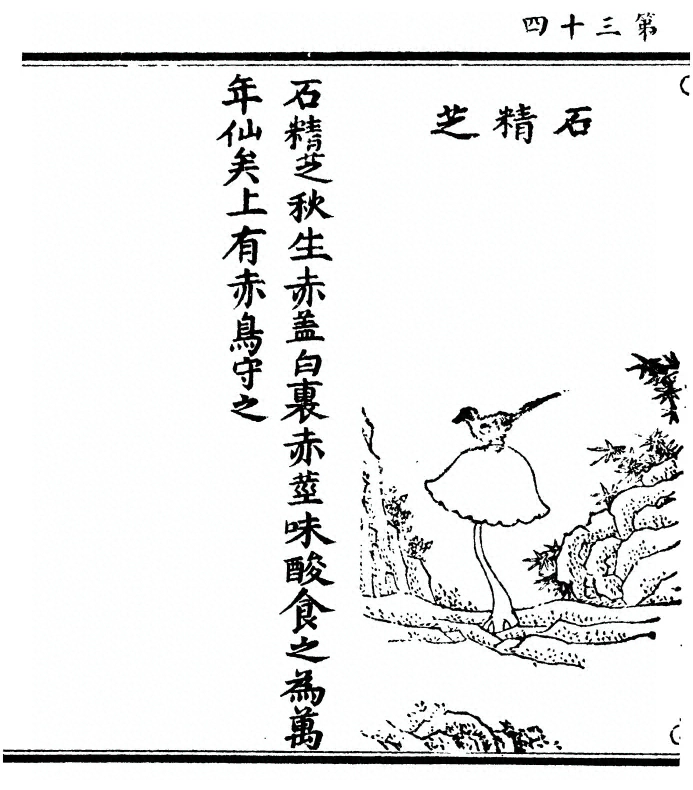 第三十四
石精芝
石精芝秋生赤盖白裏赤莖味酸食之為萬
年仙矣上有赤鳥守之